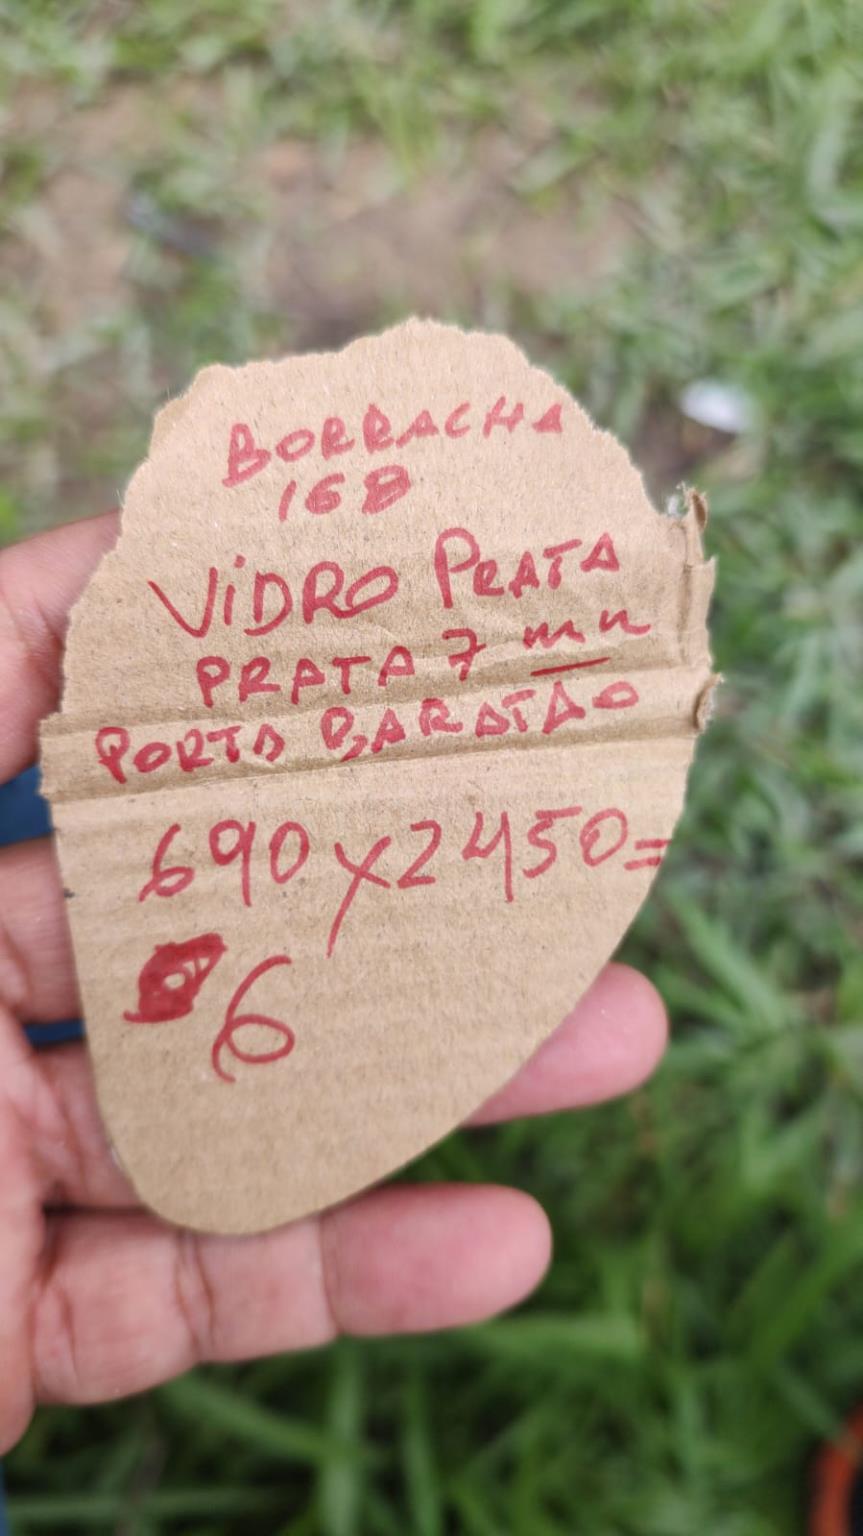 BORRACHA
168
ViDRO PRATA
PRATA 7 mm
PORTA BARATÃO
690x2450=
6